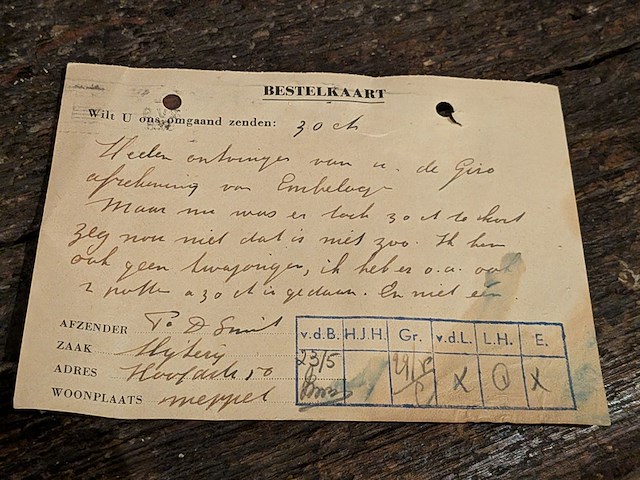 BESTELKAART
Wilt U ons omgaand zenden: 30 ct
Heden ontvingen van u. de Giro
afrekening van
Maar nu was er toch 30 ct te kort
zeg nou niet dat is niet zoo. Ik ben
ook geen, ik heb er o.a. ook
2 a 30 ct in gedaan. En niet een.
AFZENDER D Smit
ZAAK Slijterij
ADRES Hoofdstr 50
WOONPLAATS Meppel
v.d.B. H.J.H. Gr. v.d.L. L.H. E.
23/5 X O X